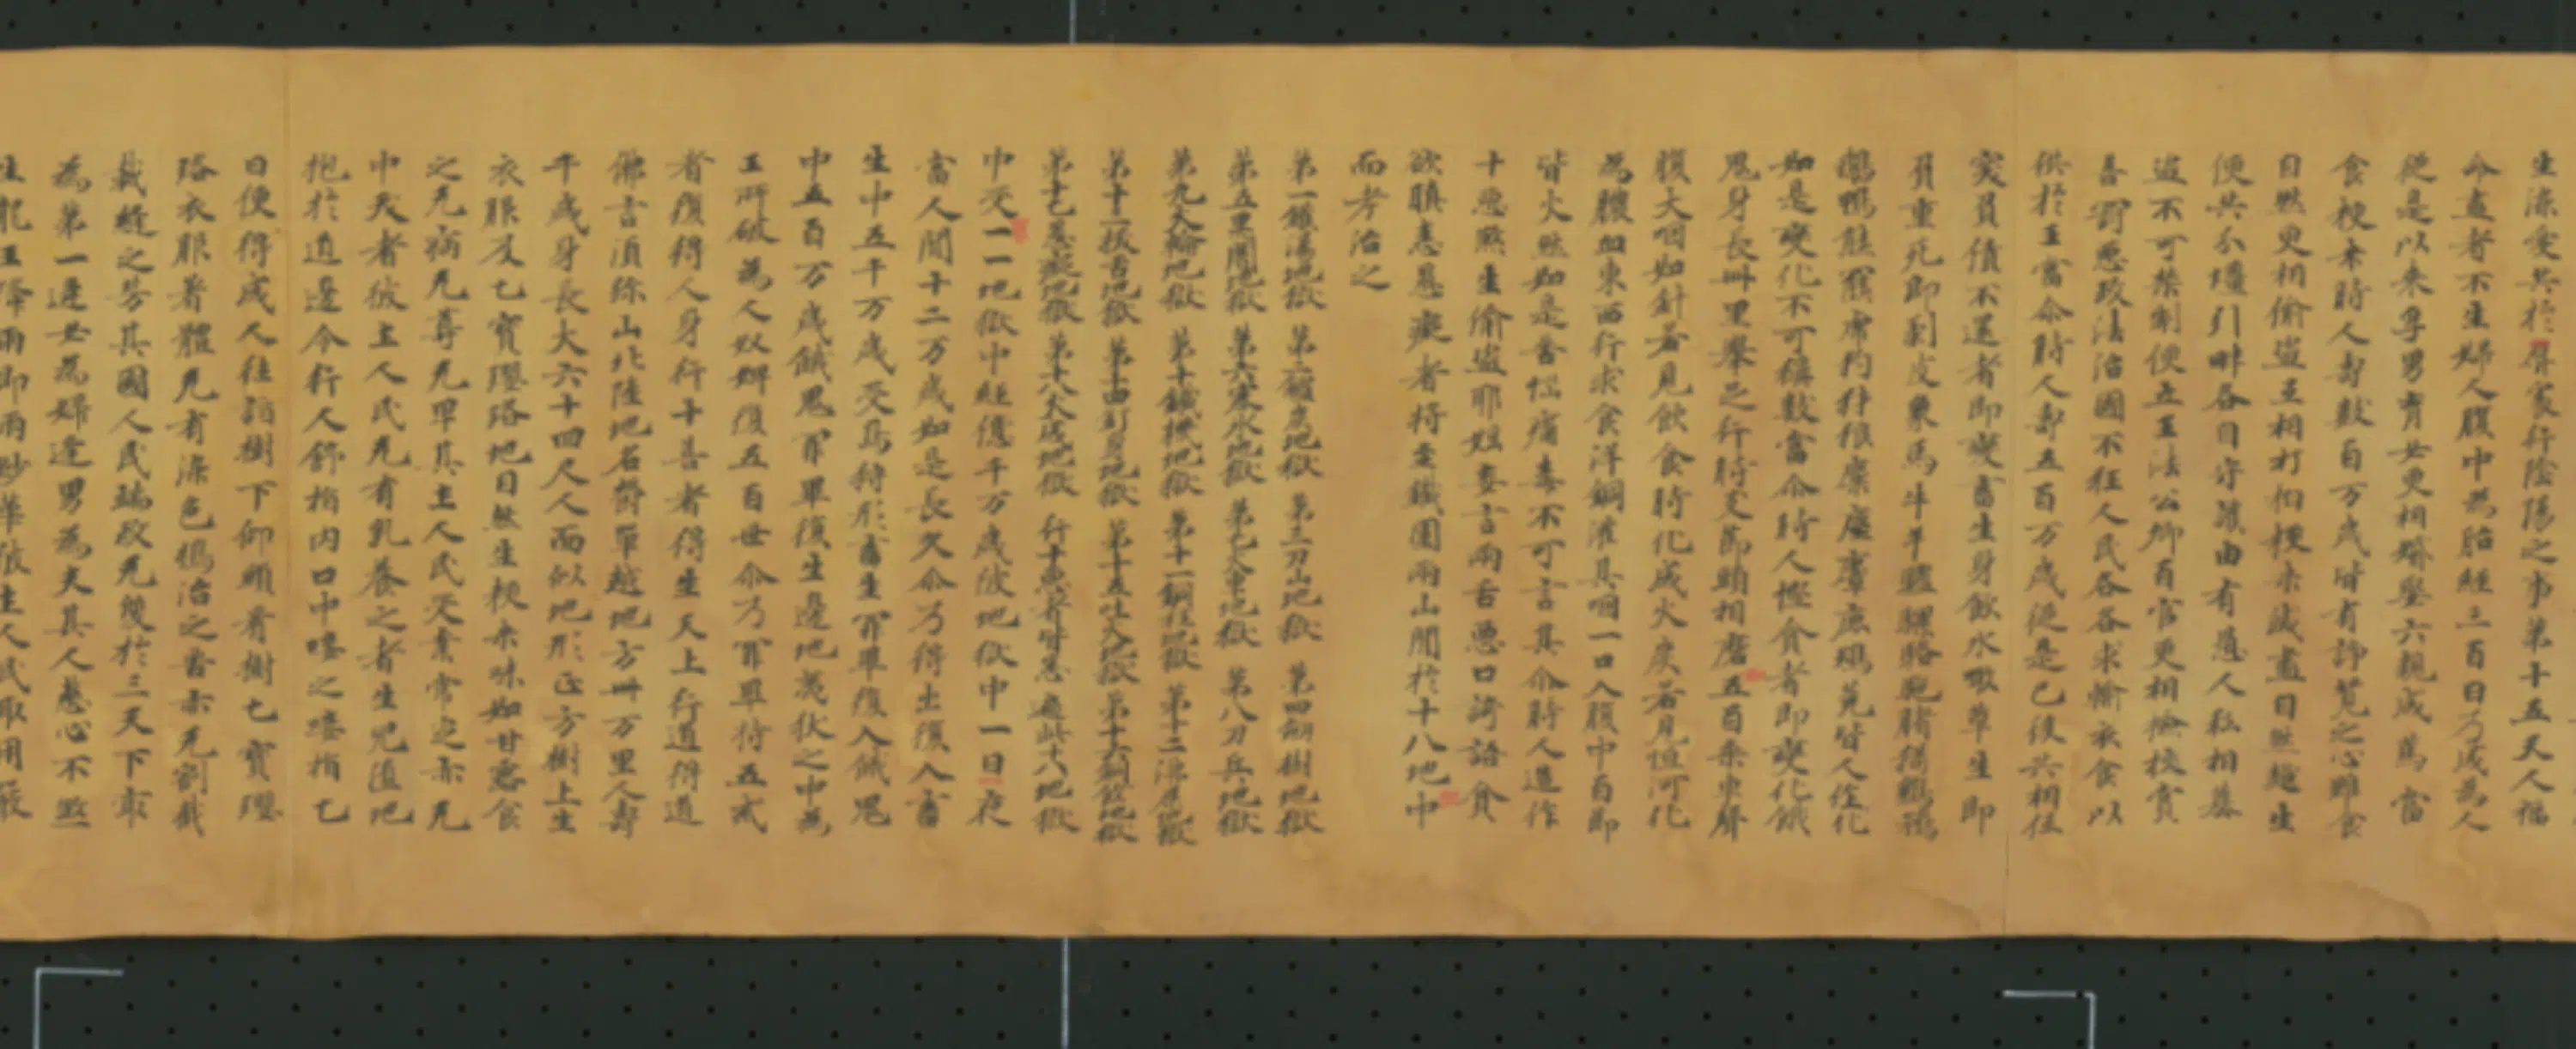 生染愛共於屏處行陰陽之事第十五天人福
命盡者不生婦人腹中為胎經三百日乃成為人
從是以來孕男育女更相婚娶六親成焉當
食粳米時人壽數百万歲皆有諍競之心雖食
自然更相偷盜互相打怕粳米滅盡自然越生
便共分壃引畔各自守護由有愚人私相纂
盜不可禁制便立王法公卿百官更相撿挍賞
善罰惡政法治國不枉人民各各求輸衣食以
供於王當尒時人壽五百万歲從是已後共相任
突負債不還者即變畜生身飲水噉草生即
負重死即剝皮象馬牛羊驢騾駱駝猪狗雞鵄
鵝鴨熊羆虎豹犲狼麋麈麞鹿鴉兎皆人任化
如是變化不可稱數當尒時人慳貪者即變化餓
鬼身長卅里舉足行時支節頭相磨五百乘車聲
腹大咽如針若見飲食時化成火炭若見恒河化
為膿血東西行求食洋銅灌其咽一口入腹中百節
皆火然如是苦惱痛毒不可言其尒時人造作
十惡煞生偷盜耶婬妄言兩舌惡口綺語貪
欲瞋恚愚癡者將至鐵圍兩山間於十八地中
而考治之
第一鑊湯地獄 第二鑪炭地獄 第三刀山地獄 第四劒樹地獄
第五黑闇地獄 第六寒氷地獄 第七火車地獄 第八刀兵地獄
第九火輪地獄 第十鐵機地獄 第十一銅柱地獄 第十二沸屎地獄
第十三拔舌地獄 第十四釘身地獄 第十五吐火地獄 第十六銅釵地獄
第十七愚癡地獄 第十八大坑地獄 行十惡者皆悉遍此十八地獄
中受一一地獄中經億千万歲彼地獄中一日一夜
當人間十二万歲如是長久尒乃得出復入畜
生中五千万歲受鳥狩形畜生罪畢復入餓鬼
中五百万歲餓鬼罪畢復生邊地夷狄之中為
王所破為人奴婢復五百世尒乃罪畢持五戒
者復得人身行十善者得生天上行道得道
佛言須弥山北陸地名欝單越地方卅万里人壽
千歲身長大六十四尺人面似地形正方樹上生
衣服及七寶瓔珞地自然生粳米味如甘露食
之无病无尊无卑其土人民受業常定亦无
中夭者彼土人民无有乳養之者生兒值地
抱於道邊令行人舒指內口中嗽之嗽指七
日便得成人往詣樹下仰頭看樹七寶瓔
珞衣服著體无有染色擣治之苦亦无割截
裁縫之勞其國人民端政无雙於三天下最
為第一逢女為婦逢男為夫其人慈心不煞
生龍王降雨即雨妙華彼土人民取用嚴